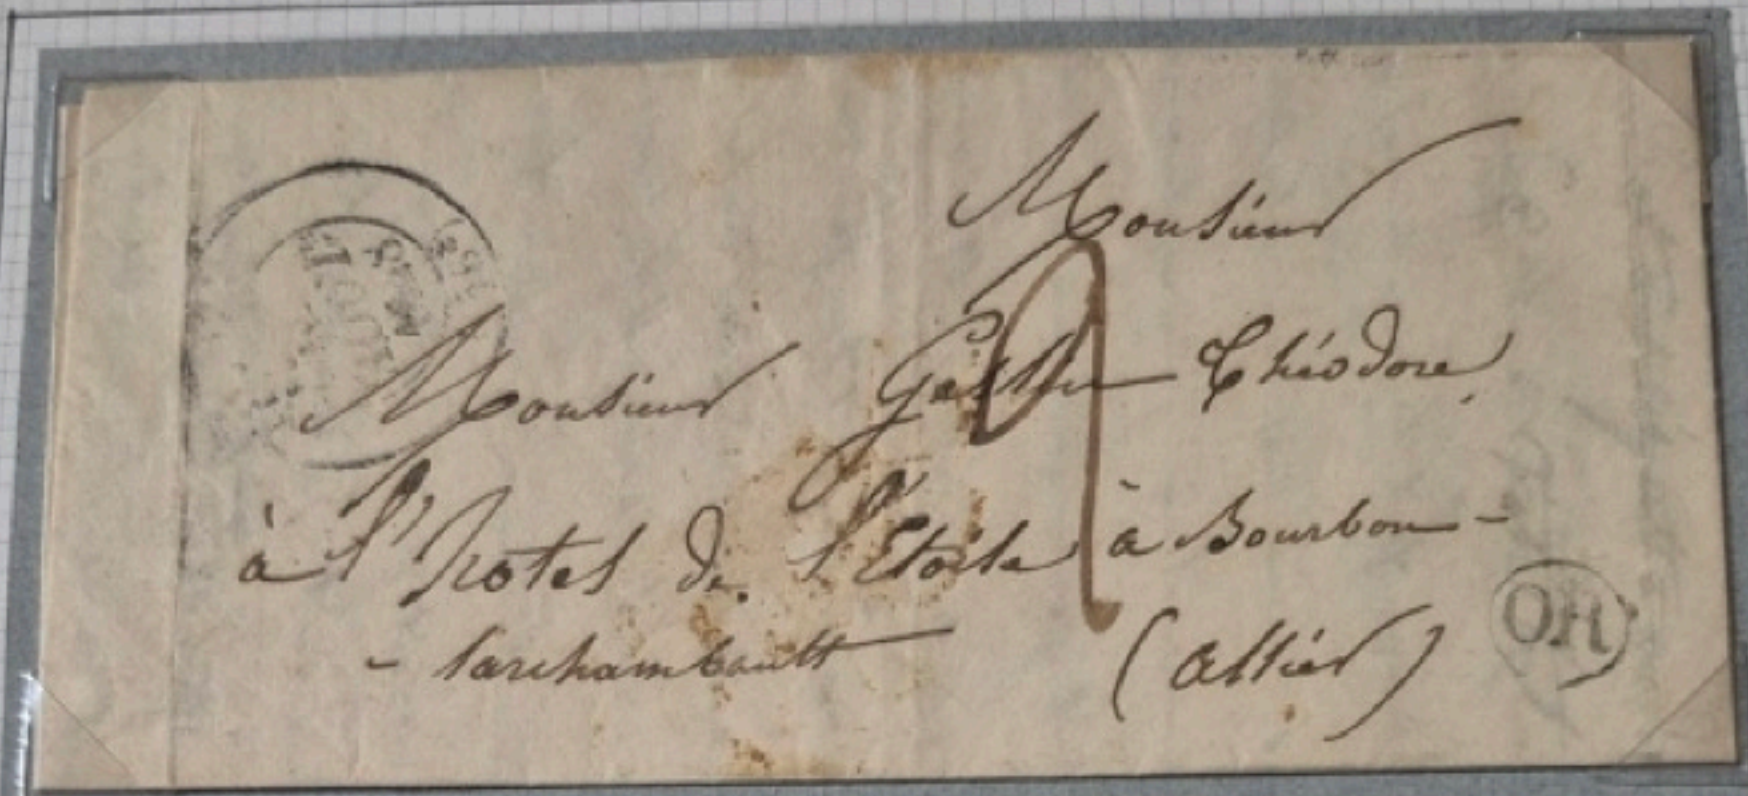 Monsieur
Monsieur Théodore
à l'hotel de l'Etoile à Bourbon-
- larchambault (allier)
OR